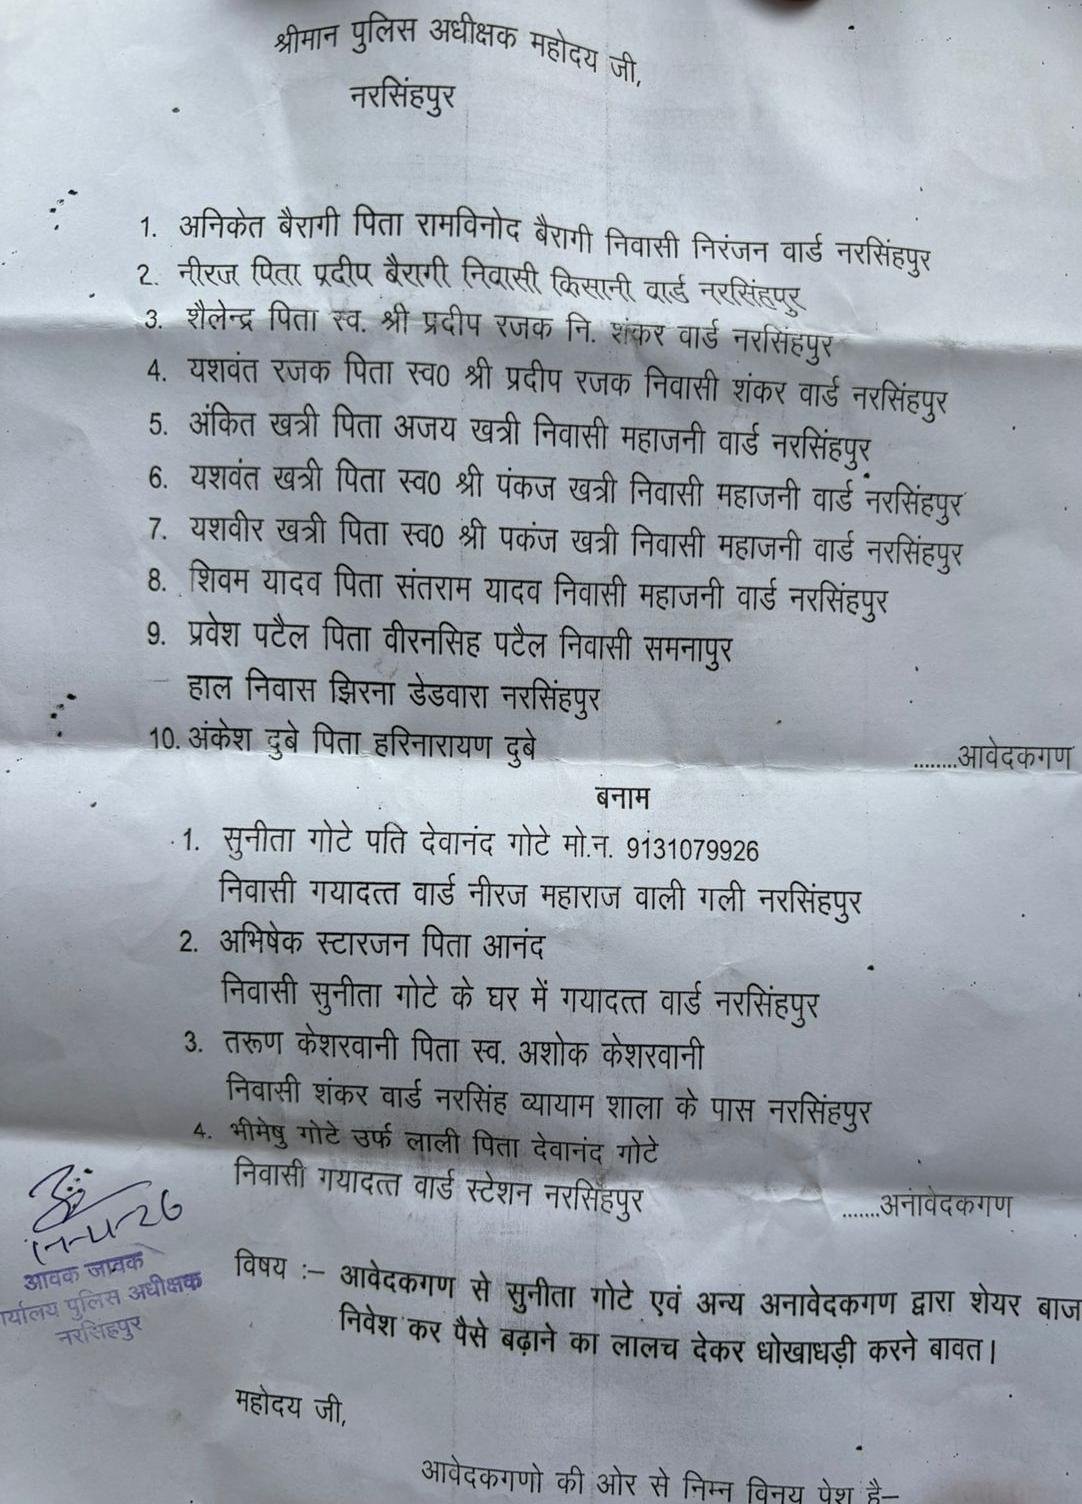 श्रीमान पुलिस अधीक्षक महोदय जी,
नरसिंहपुर
1. अनिकेत बैरागी पिता रामविनोद बैरागी निवासी निरंजन वार्ड नरसिंहपुर
2. नीरज पिता प्रदीप बैरागी निवासी किसानी वार्ड नरसिंहपुर
3. शैलेन्द्र पिता स्व. श्री प्रदीप रजक नि. शंकर वार्ड नरसिंहपुर
4. यशवंत रजक पिता स्व0 श्री प्रदीप रजक निवासी शंकर वार्ड नरसिंहपुर
5. अंकित खत्री पिता अजय खत्री निवासी महाजनी वार्ड नरसिंहपुर
6. यशवंत खत्री पिता स्व0 श्री पंकज खत्री निवासी महाजनी वार्ड नरसिंहपुर
7. यशवीर खत्री पिता स्व0 श्री पकंज खत्री निवासी महाजनी वार्ड नरसिंहपुर
8. शिवम यादव पिता संतराम यादव निवासी महाजनी वार्ड नरसिंहपुर
9. प्रवेश पटैल पिता वीरनसिह पटैल निवासी समनापुर
हाल निवास झिरना डेडवारा नरसिंहपुर
10. अंकेश दुबे पिता हरिनारायण दुबे
........आवेदकगण
बनाम
1. सुनीता गोटे पति देवानंद गोटे मो.न. 9131079926
निवासी गयादत्त वार्ड नीरज महाराज वाली गली नरसिंहपुर
2. अभिषेक स्टारजन पिता आनंद
निवासी सुनीता गोटे के घर में गयादत्त वार्ड नरसिंहपुर
3. तरूण केशरवानी पिता स्व. अशोक केशरवानी
निवासी शंकर वार्ड नरसिंह व्यायाम शाला के पास नरसिंहपुर
4. भीमेषु गोटे उर्फ लाली पिता देवानंद गोटे
निवासी गयादत्त वार्ड स्टेशन नरसिंहपुर
.......अनावेदकगण
17-4-26
आवक जावक
र्यालय पुलिस अधीक्षक
नरसिंहपुर
विषय :– आवेदकगण से सुनीता गोटे एवं अन्य अनावेदकगण द्वारा शेयर बाज
निवेश कर पैसे बढ़ाने का लालच देकर धोखाधड़ी करने बावत।
महोदय जी,
आवेदकगणो की ओर से निम्न विनय पेश है–